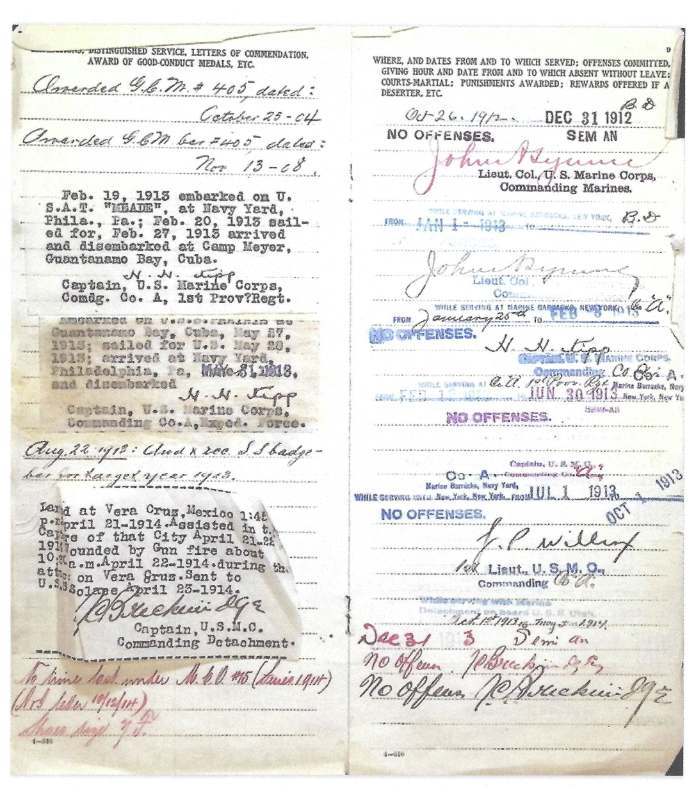 DISTINGUISHED SERVICE, LETTERS OF COMMENDATION,
AWARD OF GOOD-CONDUCT MEDALS, ETC.
Awarded G.C.M. # 405, dated:
October 25-04
Awarded G.C.M bar #405 dated:
Nov 13-08.
Feb. 19, 1913 embarked on U.
S.A.T. "MEADE", at Navy Yard,
Phila., Pa.; Feb. 20, 1913 sail-
ed for, Feb. 27, 1913 arrived
and disembarked at Camp Meyer,
Guantanamo Bay, Cuba.
H. H. Kipp
Captain, U.S. Marine Corps,
Comdg. Co. A, 1st Prov?Regt.
Embarked on U.S.S.PRAIRIE at
Guantanamo Bay, Cuba, May 27,
1913; sailed for U.S. May 28,
1913; arrived at Navy Yard,
Philadelphia, Pa, MAY 31, 1913,
and disembarked
H. H. Kipp
Captain, U.S. Marine Corps,
Commanding Co.A, Exped. Force.
Aug. 22 1913: rec. S S badge-
bar for target year 1913.
Land at Vera Cruz, Mexico 1:45
p.m. April 21-1914. Assisted in t
of that City April 21-22
ounded by Gun fire about
10: a.m. April 22-1914. during th
att on Vera Cruz. Sent to
U.S.S Solace April 23-1914.
Captain, U.S.M.C.
Commanding Detachment.
No time lost under
letter 10/12/14)
4-830
9
WHERE, AND DATES FROM AND TO WHICH SERVED; OFFENSES COMMITTED,
GIVING HOUR AND DATE FROM AND TO WHICH ABSENT WITHOUT LEAVE;
COURTS-MARTIAL; PUNISHMENTS AWARDED; REWARDS OFFERED IF A
DESERTER, ETC.
B.D
Oct-26-1912. DEC 31 1912
NO OFFENSES. SEM AN
Lieut. Col., U. S. Marine Corps,
Commanding Marines.
B.D
FROM JAN 1- 1913 TO
Lieut. Col
WHILE SERVING AT MARINE BARRACKS, NEW YORK, Co "A".
FROM January 25th TO FEB 1913
NO OFFENSES.
H. H. Kipp
Captain, U. S. MARINE CORPS.
Commanding Co A.
Marine Barracks, Navy Yard,
JUN 30 1913 New York, New Y
SEMI-AN
NO OFFENSES.
Captain, U. S. M. C.
Commanding Co. "A".
Co. A.
Marine Barracks, Navy Yard,
WHILE SERVING WITH New York, New York. FROM JUL 1 1913
OCT 1 1913
NO OFFENSES.
1st Lieut., U. S. M. C.,
Commanding Co. A.
While serving with Marine
Detachment on board U. S. S. Utah.
Dec 31 3 Semi an
No Offenses
No Offenses
4-830